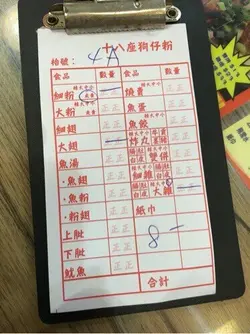 十八座狗仔粉
枱號： 4A
食品 數量 食品 數量
細粉 正正 燒賣 正正
大粉 正正 魚蛋 正正
細翅 正正 魚餃 正正
大翅 正正 炸丸 正正
魚湯 正正 雙併 正正
·魚粉 正正 細雜 正正
·粉翅 正正 大雜 正正
上肶 正正 紙巾
下肶 正正 8-
魷魚 正正 合計